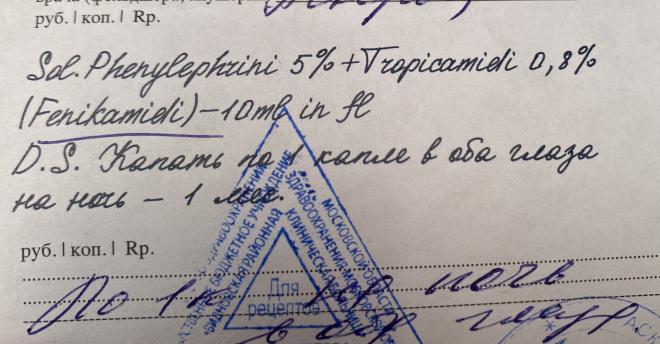 врача (фельдшера, акушерки)
руб. | коп. | Rp.
Sol. Phenylephrini 5% + Tropicamidi 0,8%
(Fenikamidi) – 10ml in fl
D.S. Капать по 1 капле в оба глаза
на ночь – 1 мес.
руб. | коп. | Rp.
По 1 к на ночь
в оба глаза
ЗДРАВООХРАНЕНИЯ
БЮДЖЕТНОЕ УЧРЕЖДЕНИЕ
ВИДНОВСКАЯ РАЙОННАЯ
МОСКОВСКОЙ ОБЛАСТИ
ЗДРАВООХРАНЕНИЯ МОСКОВСКОЙ
КЛИНИЧЕСКАЯ БОЛЬНИЦА
Для
рецептов